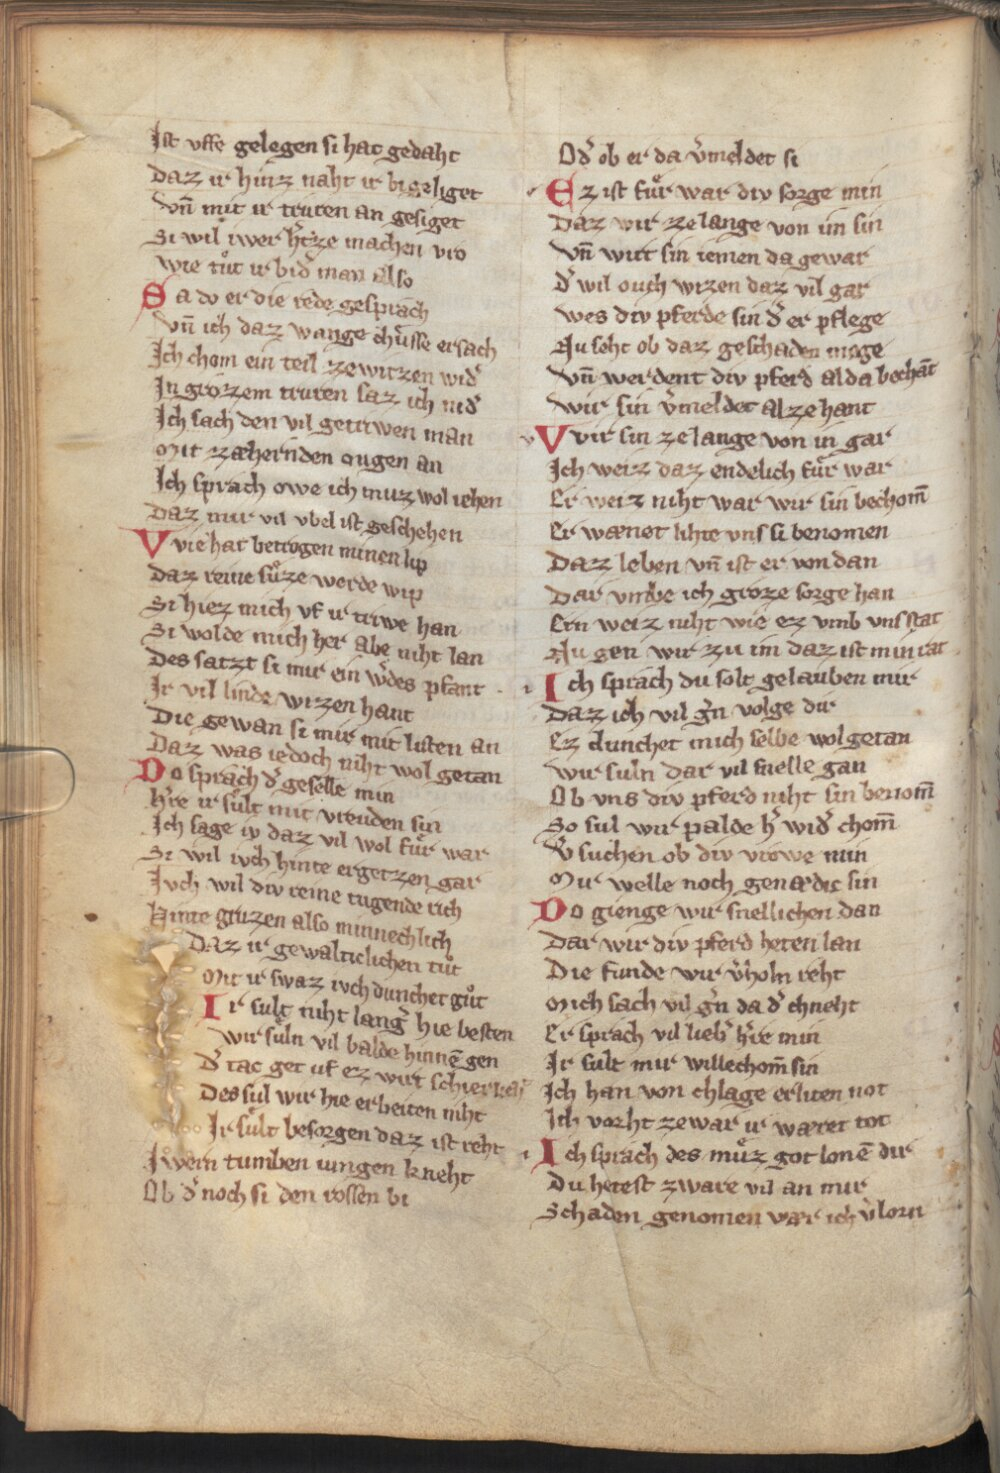 Ist vffe gelegen si hat gedaht
Daz ir hinz naht ir bigeliget
Vn̄ mit ir truren an gesiget
Si wil iwer h̓tze machen vro
Wie tuͦt ir bid man also
Sa do er die rede gesprach
Vn̄ ich daz wange chusse ersach
Ich chom ein teil ze witzen wid̓
In grozem truren saz ich nid̓
Ich sach den vil getriwen man
Mit zæhernden ougen an
Ich sprach owe ich muz wol iehen
Daz mir vil vbel ist geschehen
Vvie hat betrogen minen lip
Daz reine suͤze werde wip
Si hiez mich vf ir triwe han
Si wolde mich her abe niht lan
Des satzt si mir ein w̓des pfant
Ir vil linde wizen hant
Die gewan si mir mit listen an
Daz was iedoch niht wol getan
Do sprach d̓ geselle min
H̓re ir suͤlt mit vreuden sin
Ich sage iv daz vil wol fuͤr war
Si wil ivch hinte ergetzen gar
Ivch wil div reine tugende rich
Hinte gruzen also minnechlich
Daz ir gewalticlichen tuͦt
Mit ir swaz ivch dunchet guͦt
Ir sult niht lang̓ hie besten
Wir suln vil balde hinnē gen
D̓ tac get uf ez wirt schier
Des sul wir hie erbeiten niht
Ir suͤlt besorgen daz ist reht
Iwern tumben iungen kneht
Ob d̓ noch si den rossen bi
Od̓ ob er da v̓meldet si
Ez ist fuͤr war div sorge min
Daz wir ze lange von im sin
Vn̄ wirt sin iemen da gewar
D̓ wil ouch wizen daz vil gar
Wes div pferde sin d̓ er pflege
Nu seht ob daz geschaden mege
Vn̄ werdent div pferd alda bechāt
Wir sin v̓meldet alzehant
Vvir sin ze lange von in gar
Ich weiz daz endelich fuͤr war
Er weiz niht war wir sin bechom̄
Er wænet lihte vns si benomen
Daz leben vn̄ ist er von dan
Dar vmbe ich groze sorge han
Ern weiz niht wie ez vmb vns stat
Nu gen wir zu im daz ist min rat
Ich sprach du solt gelauben mir
Daz ich vil g̓n volge dir
Ez dunchet mich selbe wol getan
Wir suln dar vil snelle gan
Ob vns div pferd niht sin benom̄
So sul wir palde h̓ wid̓ chom̄
V̓suchen ob div vrowe min
Mir welle noch genædic sin
Do gienge wir snellichen dan
Dar wir div pferd heten lan
Die funde wir v̓holn reht
Mich sach vil g̓n da d̓ chneht
Er sprach vil lieb̓ h̓re min
Ir sult mir willechom̄ sin
Ich han von chlage erliten not
Ich vorht zewar ir wæret tot
Ich sprach des muͤz got lonē dir
Du hetest zware vil an mir
Schaden genomen wær ich v̓lorn